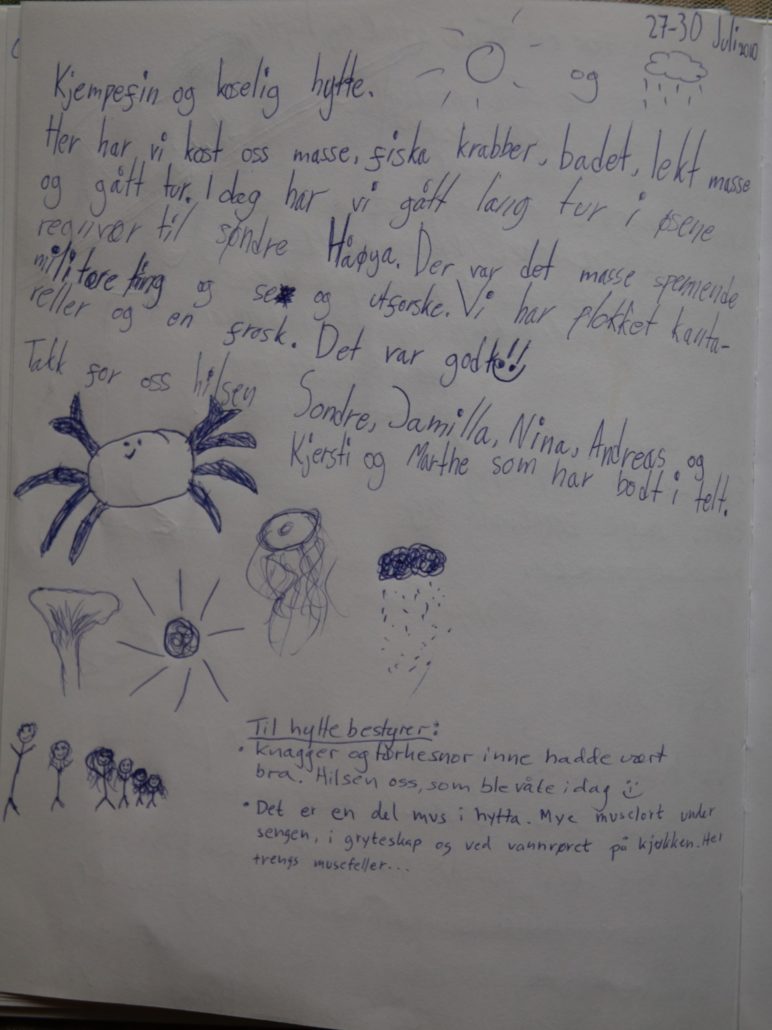 27-30 Juli 2010
Kjempefin og koselig hytte. og
Her har vi kost oss masse, fiska krabber, badet, lekt masse
og gått tur. I dag har vi gått lang tur i øsene
regnvær til søndre Håøya. Der var det masse spennende
militære ting og se og utforske. Vi har plokket kanta-
reller og en frosk. Det var godt!!
Takk for oss hilsen
Sondre, Jamilla, Nina, Andreas og
Kjersti og Marthe som har bodt i telt.
Til hyttebestyrer:
• Knagger og tørkesnor inne hadde vært
bra. Hilsen oss, som ble våte idag
• Det er en del mus i hytta. Mye muselort under
sengen, i gryteskap og ved vannrøret på kjøkken. Her
trengs musefeller...